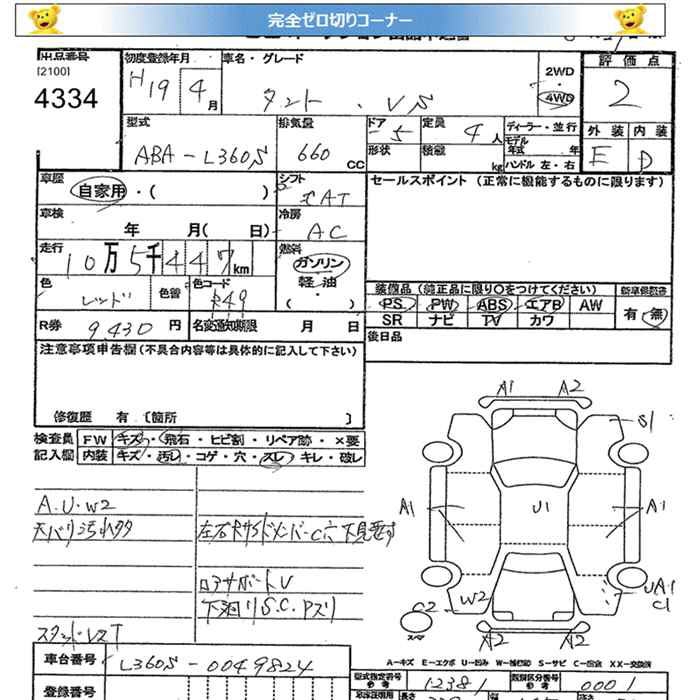 完全ゼロ切りコーナー
出品番号 初度登録年月 車名・グレード 2WD 評価点
[2100] H19 4月 タント . VS 4WD 2
4334
型式 排気量 ドア 5 定員 4人 ディーラー・並行 外装 内装
ABA-L360S 660 CC 形状 積載 kg モデル年式 年 E D
ハンドル 左・右
車歴 自家用・( ) シフト セールスポイント (正常に機能するものに限ります)
AT
車検 年 月( 日) 冷房 AC
走行 10万5千447km 燃料 ガソリン
軽油
・( )
色 レッド 色替 色コード R49
装備品(純正品に限り○をつけてください) 新車保証書
PS PW ABS エアB AW 有・無
SR ナビ TV カワ
R券 9,430円 名変通知期限 月 日 後日品
注意事項申告欄(不具合内容等は具体的に記入して下さい)
修復歴 有 〔箇所 〕
検査員 FW キズ・飛石・ヒビ割・リペア跡・×要
記入欄 内装 キズ・汚レ・コゲ・穴・スレ・キレ・破レ
A1 A2
S1
A.U.W2
A1 U1 A1
天バリ汚れ
下見要す
ロアサポートU
下廻りS.C.
C2 W2 UA1 C1
スタッドレスT
A2 A2
A-キズ E-エクボ U-凹み W-補修跡 S-サビ C-腐食 XX-交換済
車台番号 L360S-0049824 型式指定番号 12381 類別区分番号 0001
登録番号